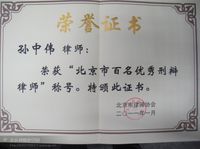 荣誉证书
孙中伟 律师：
荣获“北京市百名优秀刑辩
律师”称号。特颁此证书。
北京市律师协会
二〇一一年一月